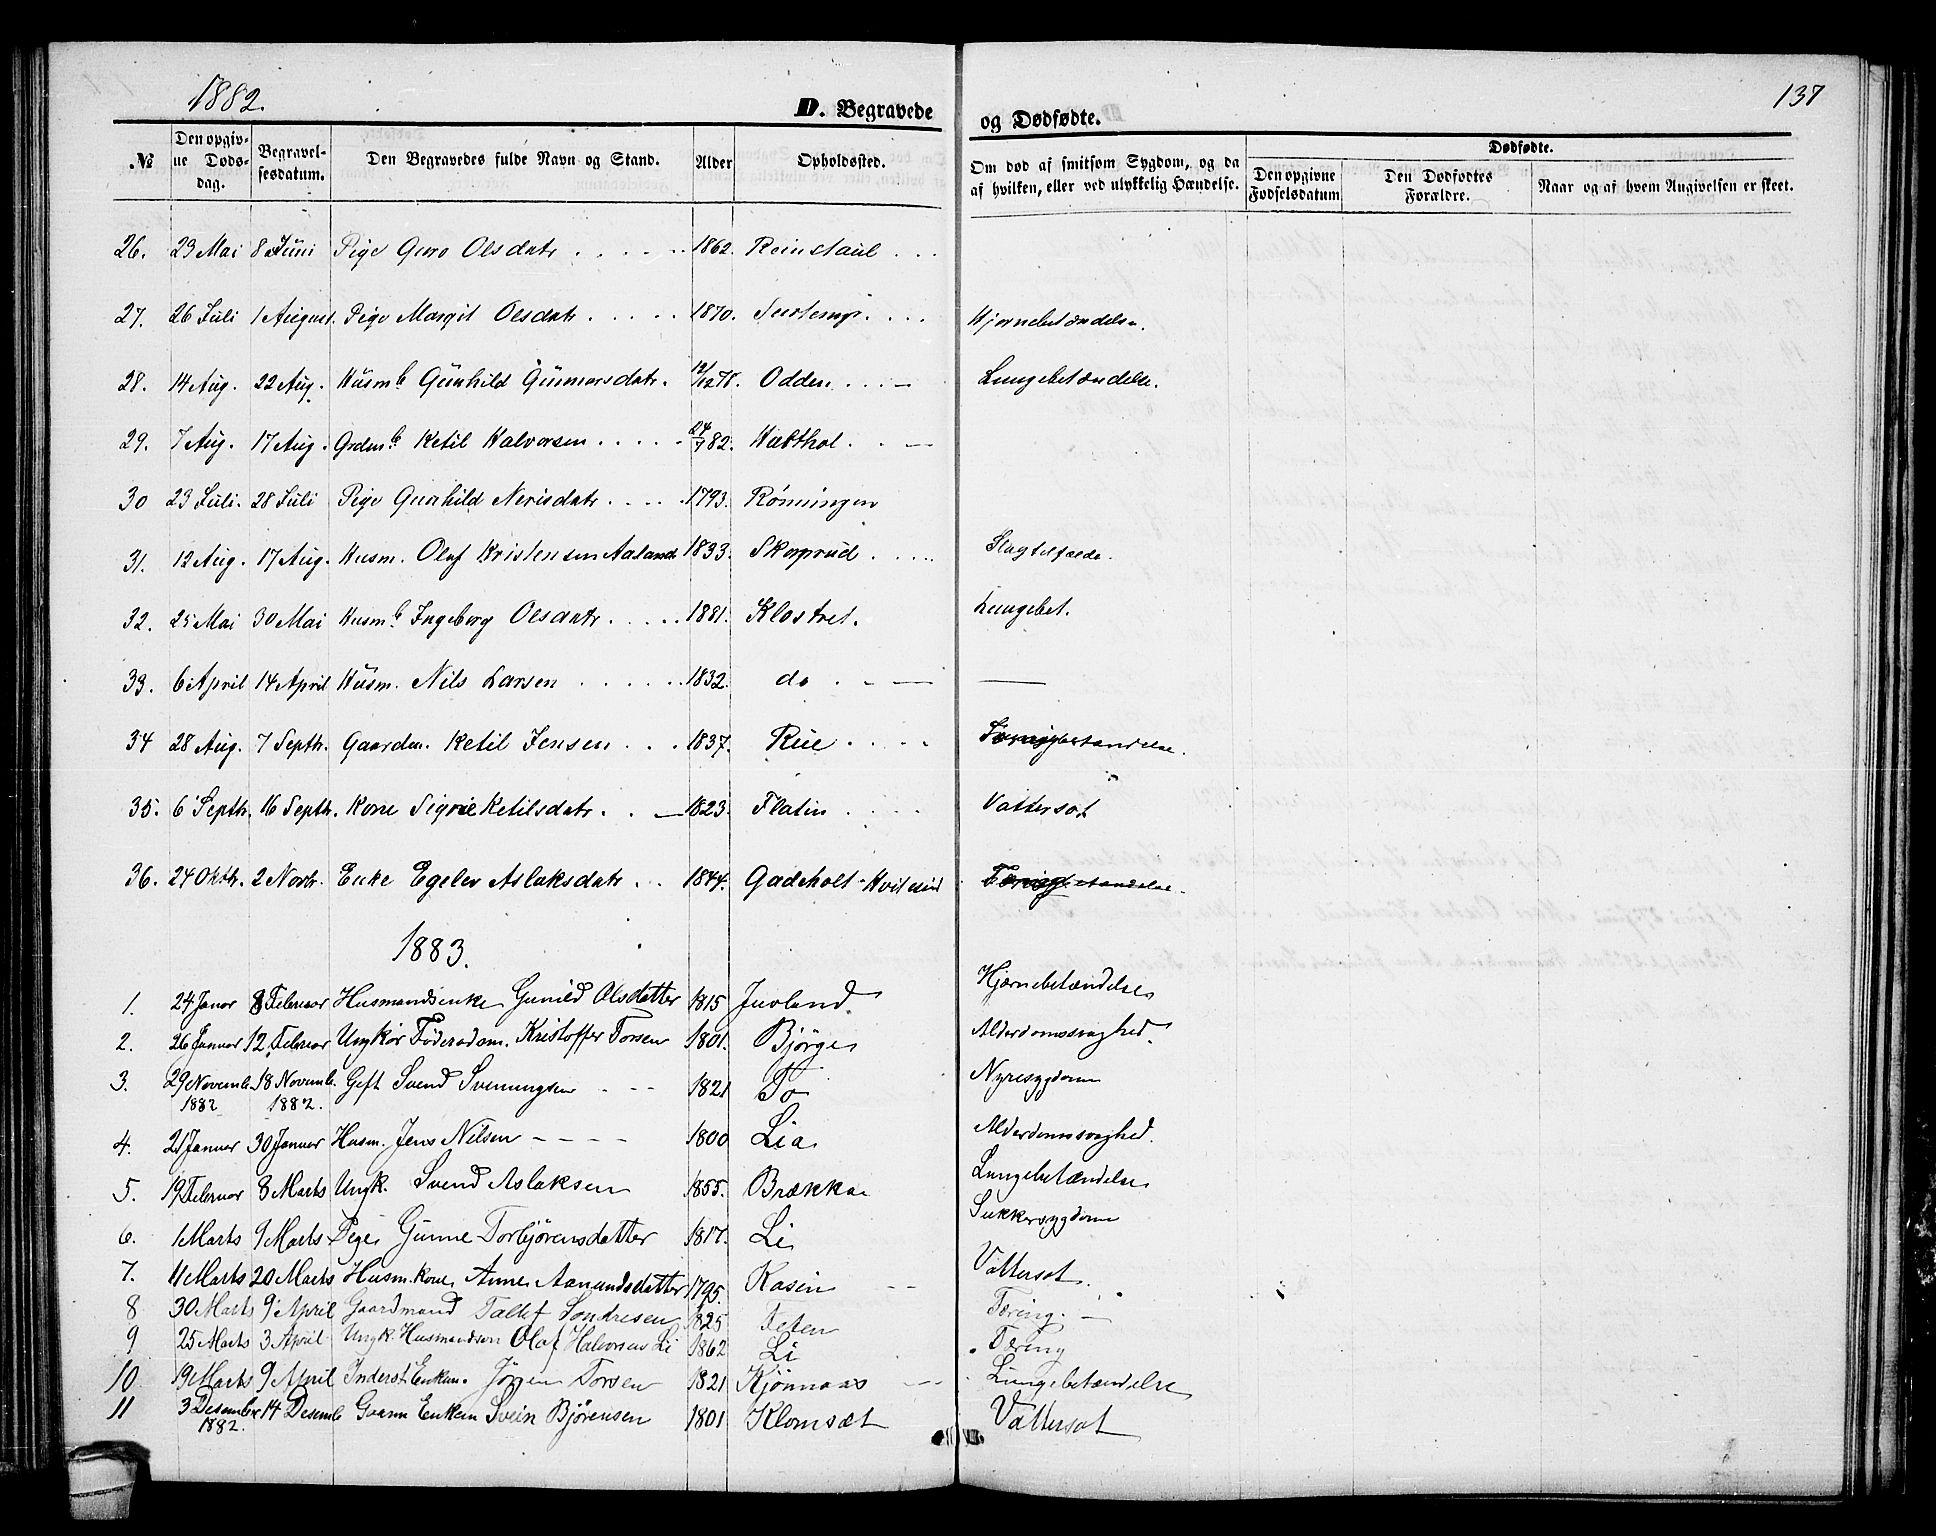 1882.
D. Begravede
og Dødfødte.
137
№
Den opgivne Dødsdag.
Begravelsesdatum.
Den Begravedes fulde Navn og Stand.
Alder
Opholdssted.
Om død af smitsom Sygdom, og da af hvilken, eller ved ulykkelig Hændelse.
Dødfødte.
Den opgivne Fødselsdatum
Den Dødfødtes Forældre.
Naar og af hvem Angivelsen er skeet.
26. 23 Mai 8 Juni Pige Guro Olsdatr 1862. Reinstaul
27. 26 Juli 1 August. Pige Margit Olsdatr 1870. Hjernebetændelse.
28. 14 Aug. 22 Aug. Husmb Gunhild Gunnarsdatr. 12/12 78. Odden Lungebetændelse.
29. 7 Aug. 17 Aug. Grdmb Ketil Halvorsen 24/7 82. Haatthol
30 23 Juli. 28 Juli Pige Gunhild Nerisdatr 1793. Rönningen
31. 12 Aug. 17 Aug. Husm. Olaf Kristensen Aaland 1833. Skorprud Slagtilfælde.
32. 25 Mai 30 Mai Husmb Ingeborg Olsdatr 1881. Klostret. Lungebet.
33. 6 April 14 April Husm. Nils Larsen 1832. do
34 28 Aug. 7 Septbr. Gaardm. Ketil Jensen 1837. Rue
35. 6 Septbr. 16 Septbr. Kone Sigrie Ketilsdatr. 1823. Flatin Vattersot
36. 24 Oktbr. 2 Novbr. Enke Egelev Aslaksdatr 1844. Gadeholt - Hviteseid
1883.
1. 24 Januar 8 Februar Husmandsenke Gunild Olsdatter 1815 Juvland Hjærnebetændelse
2. 26 Januar 12 Februar Ungkar Föderadsm. Kristoffer Torsen 1801. Björge Alderdomssvaghed.
3. 29 Novemb. 1882 18 Novemb. 1882. Gift Svend Svenungsen 1821 To Nyresygdom
4. 21 Januar 30 Januar Husm. Jens Nilsen 1800 Lia Alderdomssvaghed.
5. 19 Februar 3 Marts Ungk. Svend Aslaksen 1855. Brækka Lungebetændelse
6. 1 Marts 9 Marts Pige Gunne Torbjörensdatter 1817. Li Sukkersygdom
7. 11 Marts 20 Marts Husm. kone Anne Aanundsdatter 1795. Kasin Vattersot.
8 30 Marts 9 April Gaardmand Tallef Sondresen 1825 Teten Tæring.
9 25 Marts 3 April Ungk. Husmandssön Olaf Halvorsen Li 1862 Li Tæring
10 19 Marts 9 April Inderst Enkem. Jörgen Torsen 1821 Kjönnaas Lungebetændelse
11 3 Desember 1882. 14 Desemb Gvamn Enkem Svein Björensen 1801 Klomsæt Vattersot